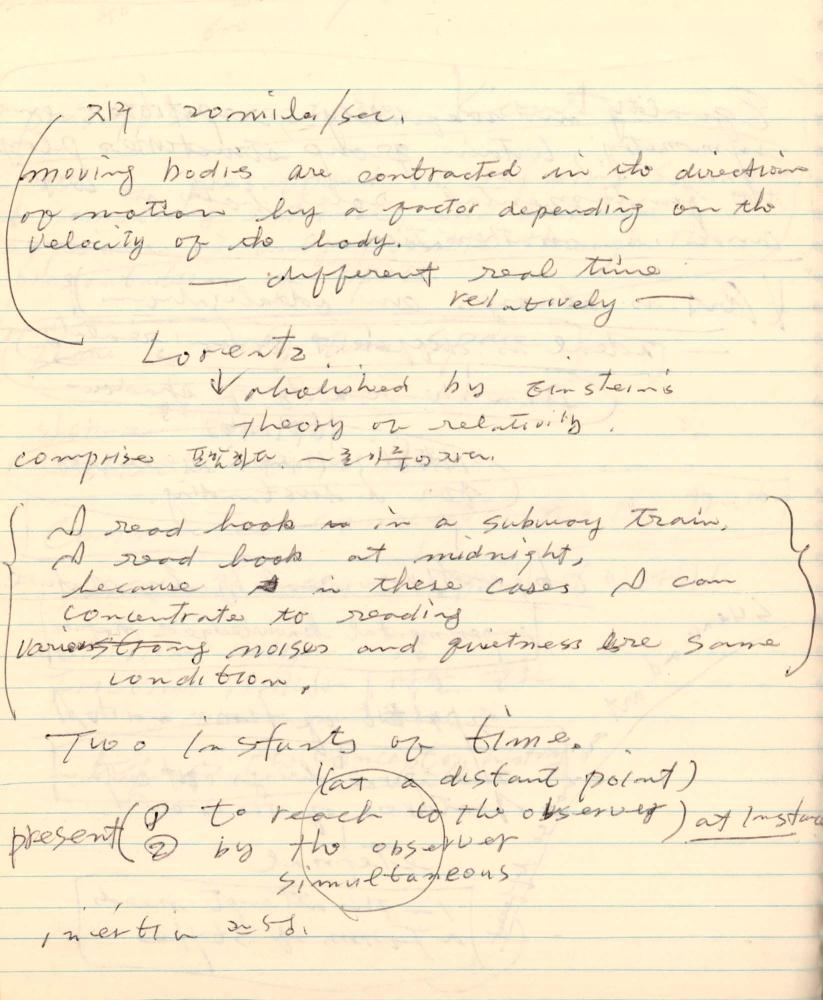 지구 20mile/sec.
moving bodies are contracted in the direction
of motion by a factor depending on the
velocity of the body.
— different real time
relatively —
Lorentz
↓ abolished by Einstein's
theory of relativity.
comprise 포함하다. ~로 이루어지다.
I read book in a subway train,
I read book at midnight,
because in these cases I can
concentrate to reading
various noises and quietness are same
condition.
Two instants of time.
(at a distant point)
present (① to reach to the observer) at instant
② by the observer
simultaneous
inertia 관성.